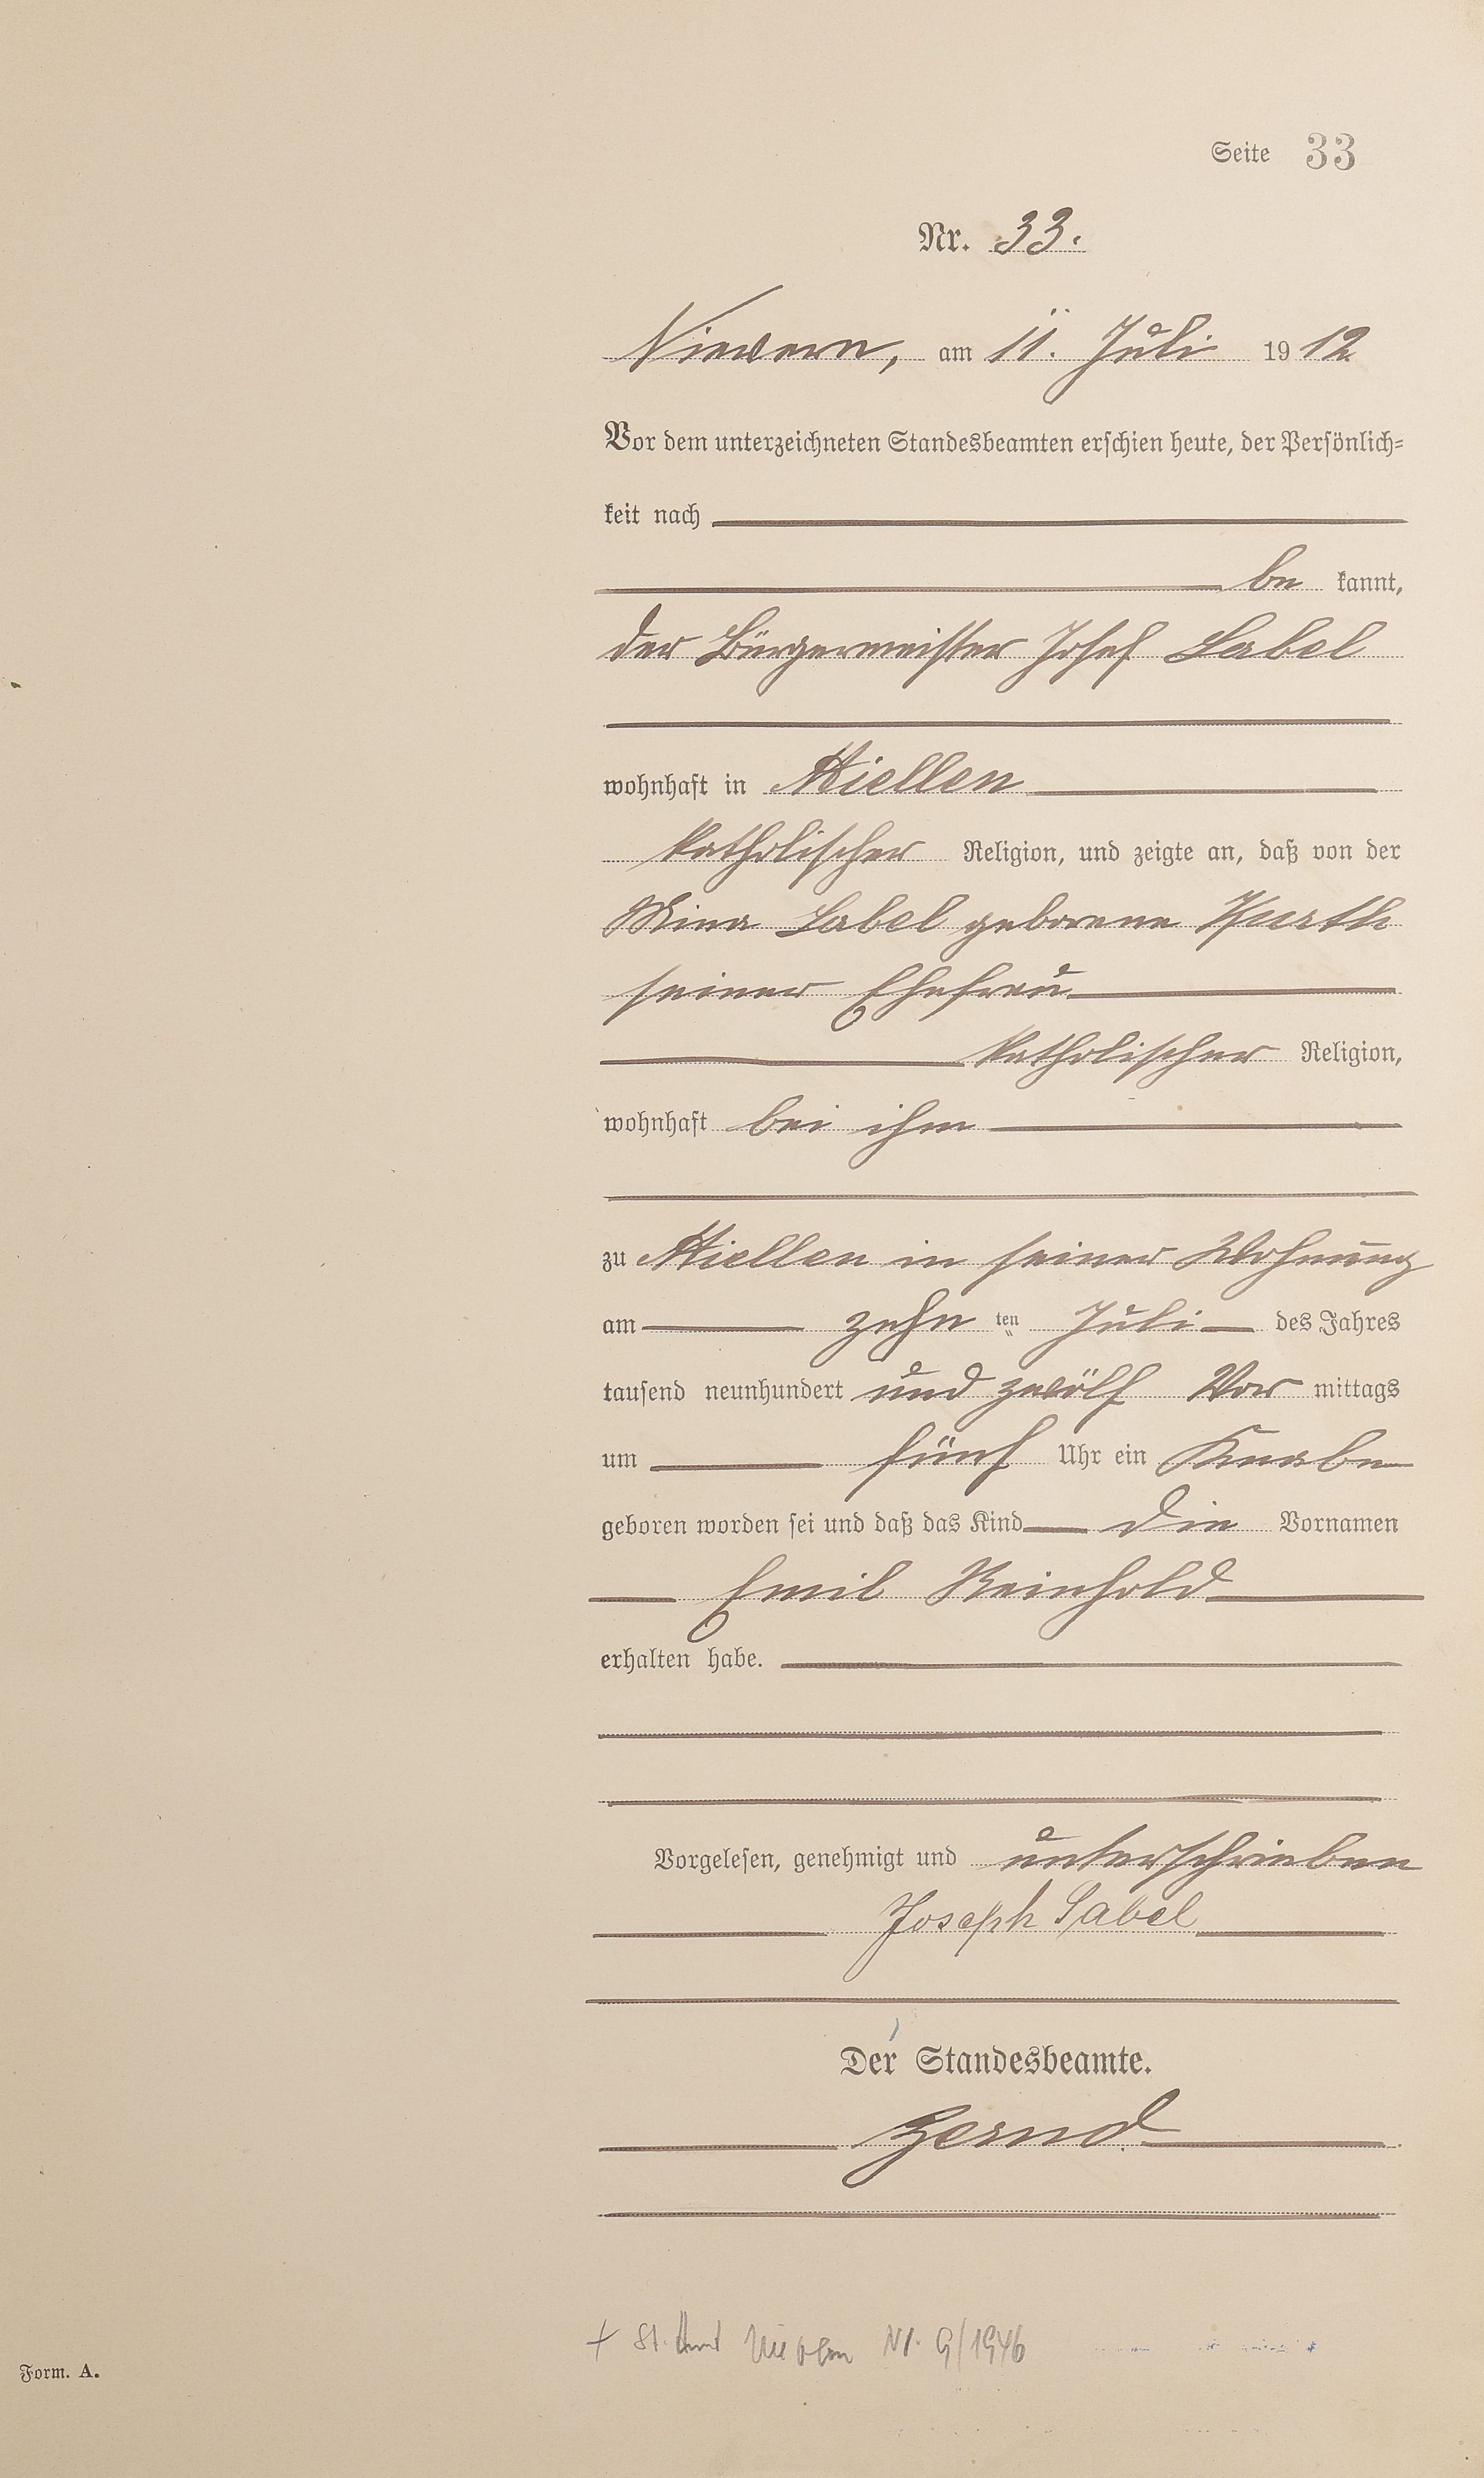 Seite 33
Nr. 33.
Nievern, am 11. Juli 1912
Vor dem unterzeichneten Standesbeamten erschien heute, der Persönlich-
keit nach
be kannt,
der Bürgermeister Josef Sabel
wohnhaft in Miellen
katholischer Religion, und zeigte an, daß von der
Mina Sabel geborene Kurth
seiner Ehefrau
katholischer Religion,
wohnhaft bei ihm
zu Miellen in seiner Wohnung
am zehn ten Juli des Jahres
tausend neunhundert und zwölf Vor mittags
um fünf Uhr ein Knabe
geboren worden sei und daß das Kind die Vornamen
Emil Reinhold
erhalten habe.
Vorgelesen, genehmigt und unterschrieben
Joseph Sabel
Der Standesbeamte.
+ St. Amt Nievern Nr. 9/1946
Form. A.